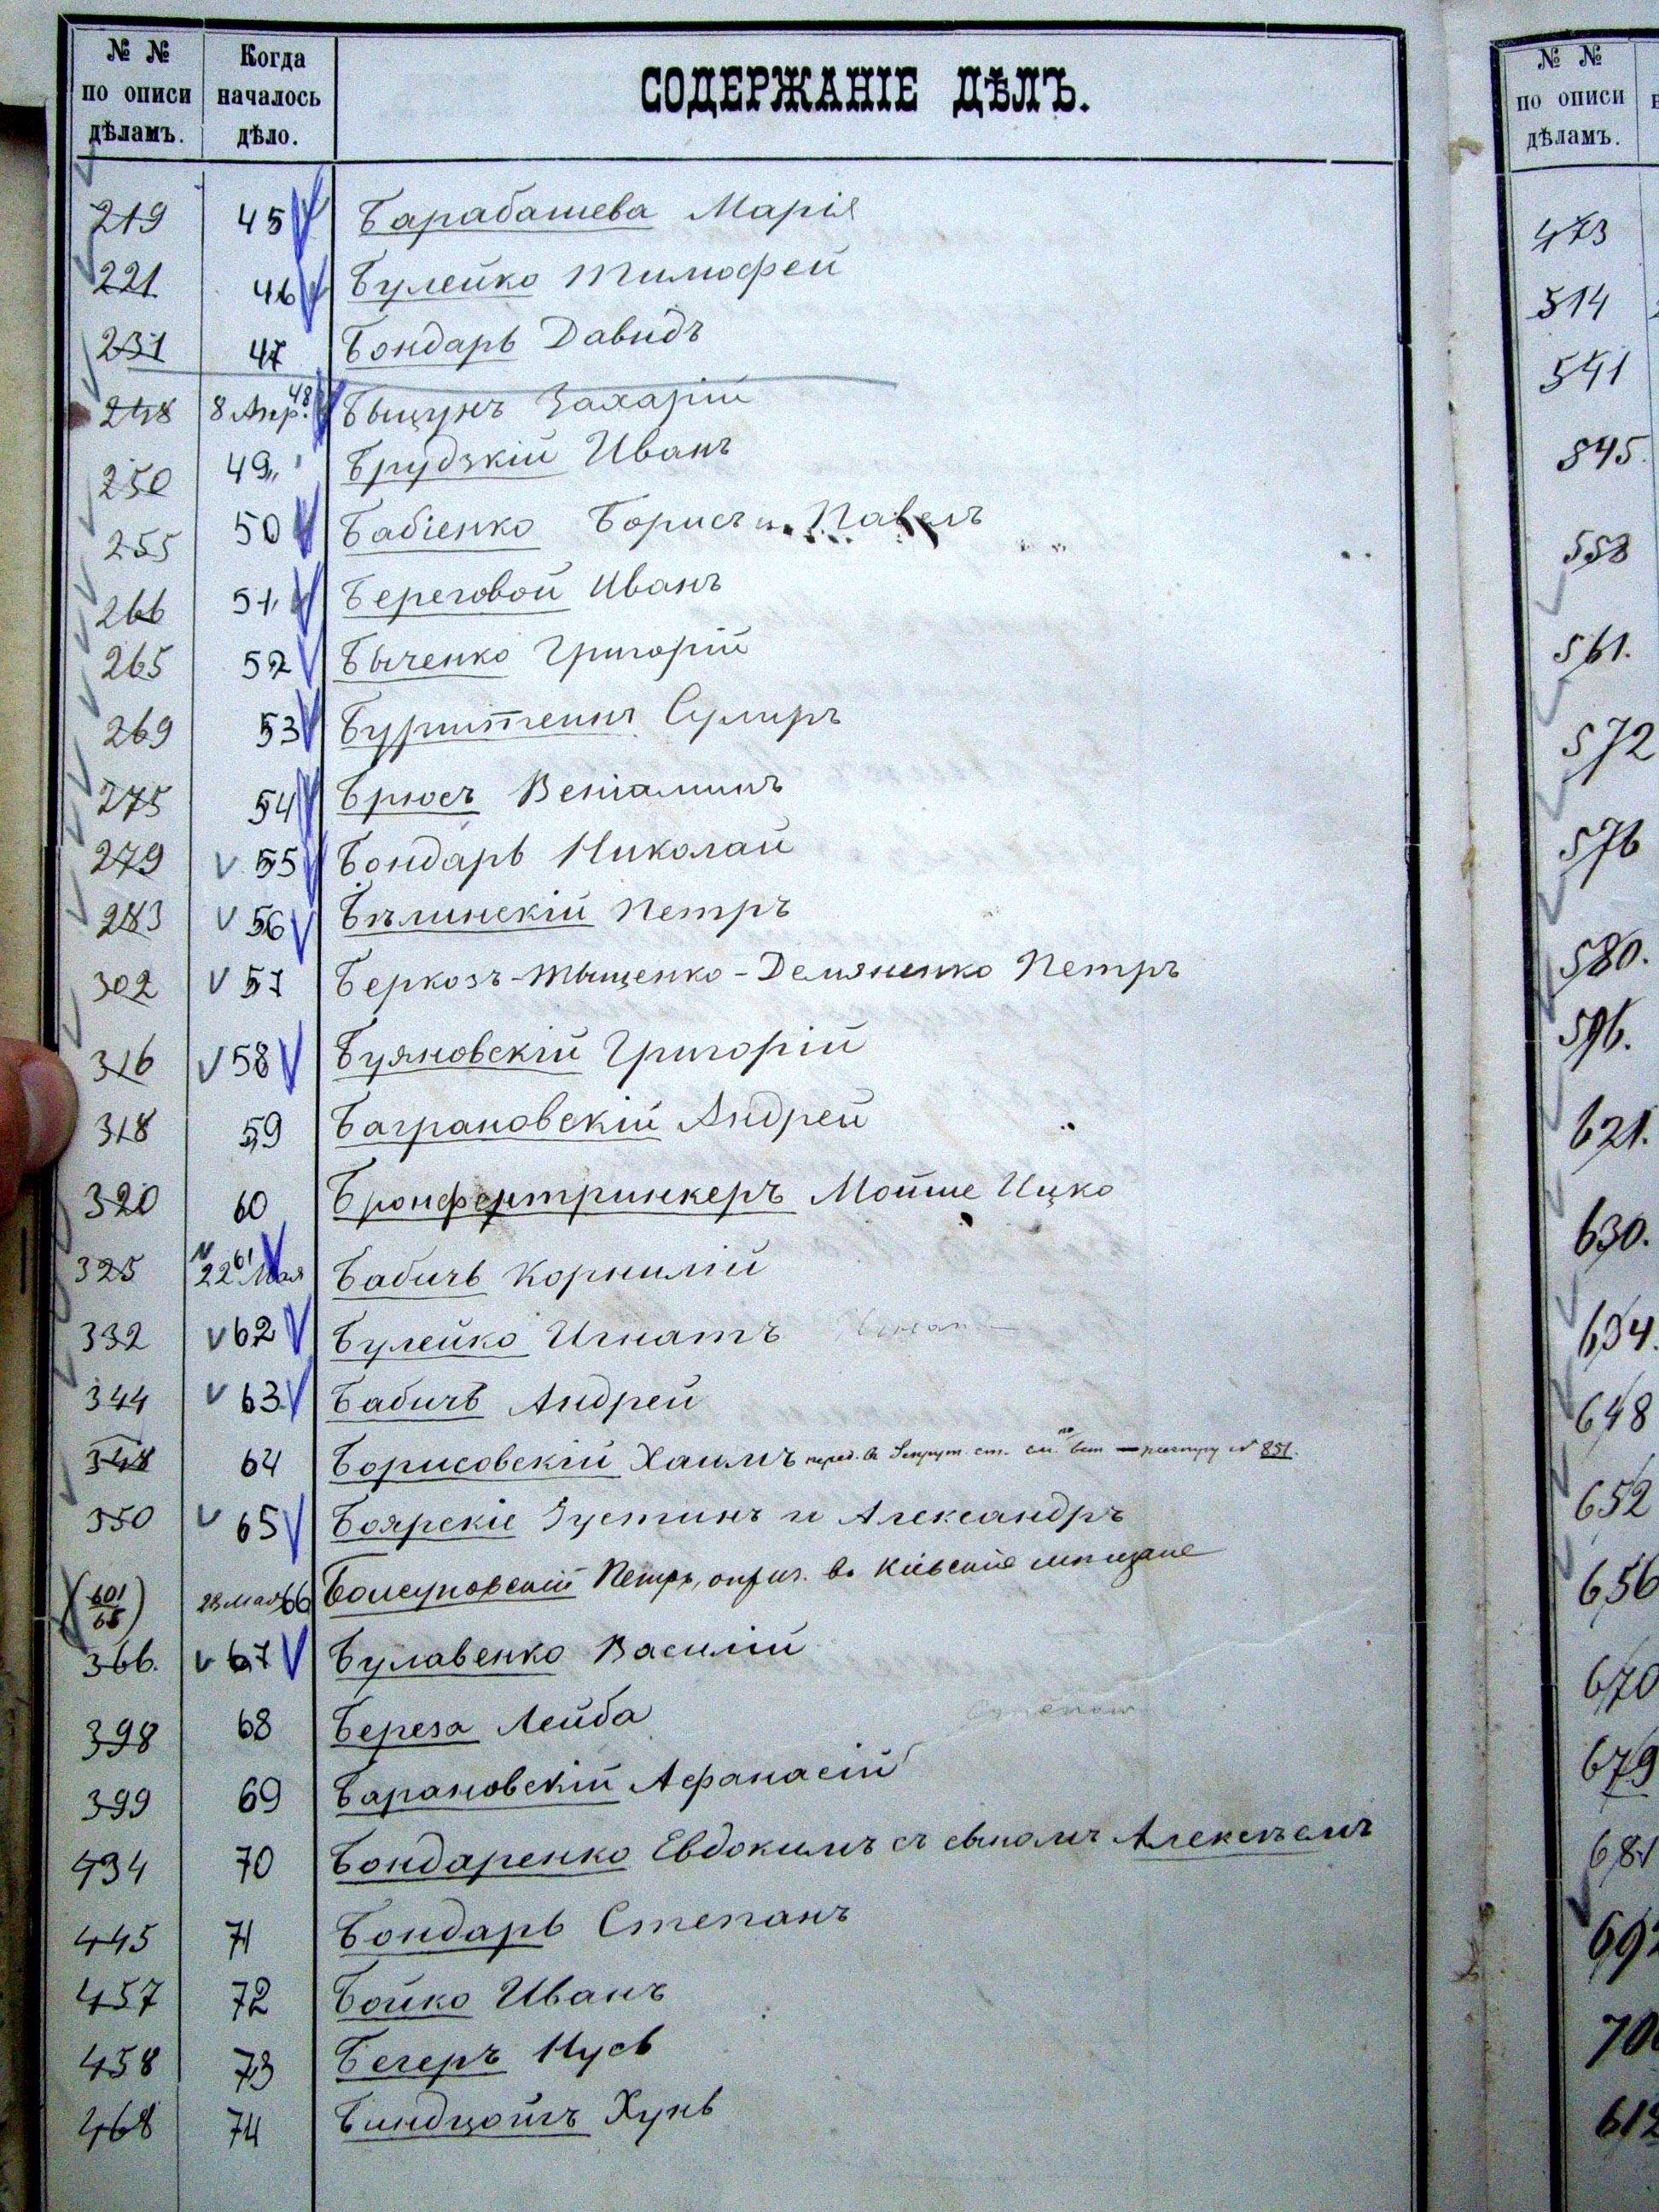 № № по описи дѣламъ. Когда началось дѣло. СОДЕРЖАНІЕ ДѢЛЪ.
219 45 Барабашева Марія
221 46 Булейко Тимофей
231 47 Бондарь Давидъ
248 8 Апр. 48 Быцунъ Захарій
250 49 Брудзкій Иванъ
255 50 Бабіенко Борисъ и Павелъ
266 51 Береговой Иванъ
265 52 Быченко Григорій
269 53 Бурштеинъ Сумиръ
275 54 Брюсъ Веніаминъ
279 55 Бондарь Николай
283 56 Бѣлинскій Петръ
302 57 Беркозъ-Тыщенко-Демяненко Петръ
316 58 Буяновскій Григорій
318 59 Баграновскій Андрей
320 60 Бронфертринкеръ Мойше Ицко
325 22 Мая 61 Бабичъ Корнилій
332 62 Булейко Игнатъ
344 63 Бабичъ Андрей
348 64 Борисовскій Хаимъ перед. въ ст. см. по № 851.
350 65 Боярскіе Іустинъ и Александръ
(601/65) 28 мая 66 Петръ, въ Кіевскіе мѣщане
366. 67 Булавенко Василій
398 68 Береза Лейба
399 69 Барановскій Афанасій
434 70 Бондаренко Евдокимъ съ сыномъ Алексѣемъ
445 71 Бондарь Степанъ
457 72 Бойко Иванъ
458 73 Бегеръ Нусь
468 74 Биндцойгъ Хунь
№ № по описи дѣламъ.
473
514
541
545.
558
561.
572
576
580.
596.
621.
630.
634.
648
652
656
670
679
681